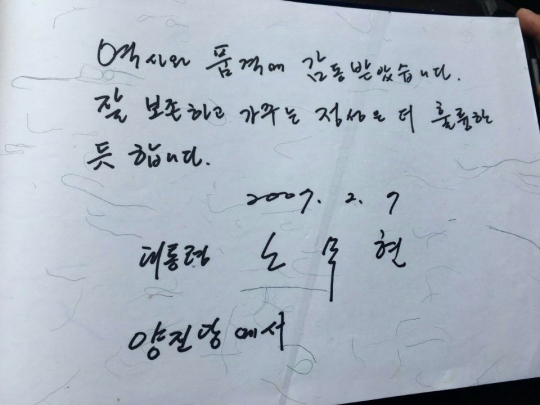 역사와 품격에 감동받았습니다.
잘 보존하고 가꾸는 정성은 더 훌륭한
듯 합니다.
2007. 2. 7
대통령 노무현
양진당에서